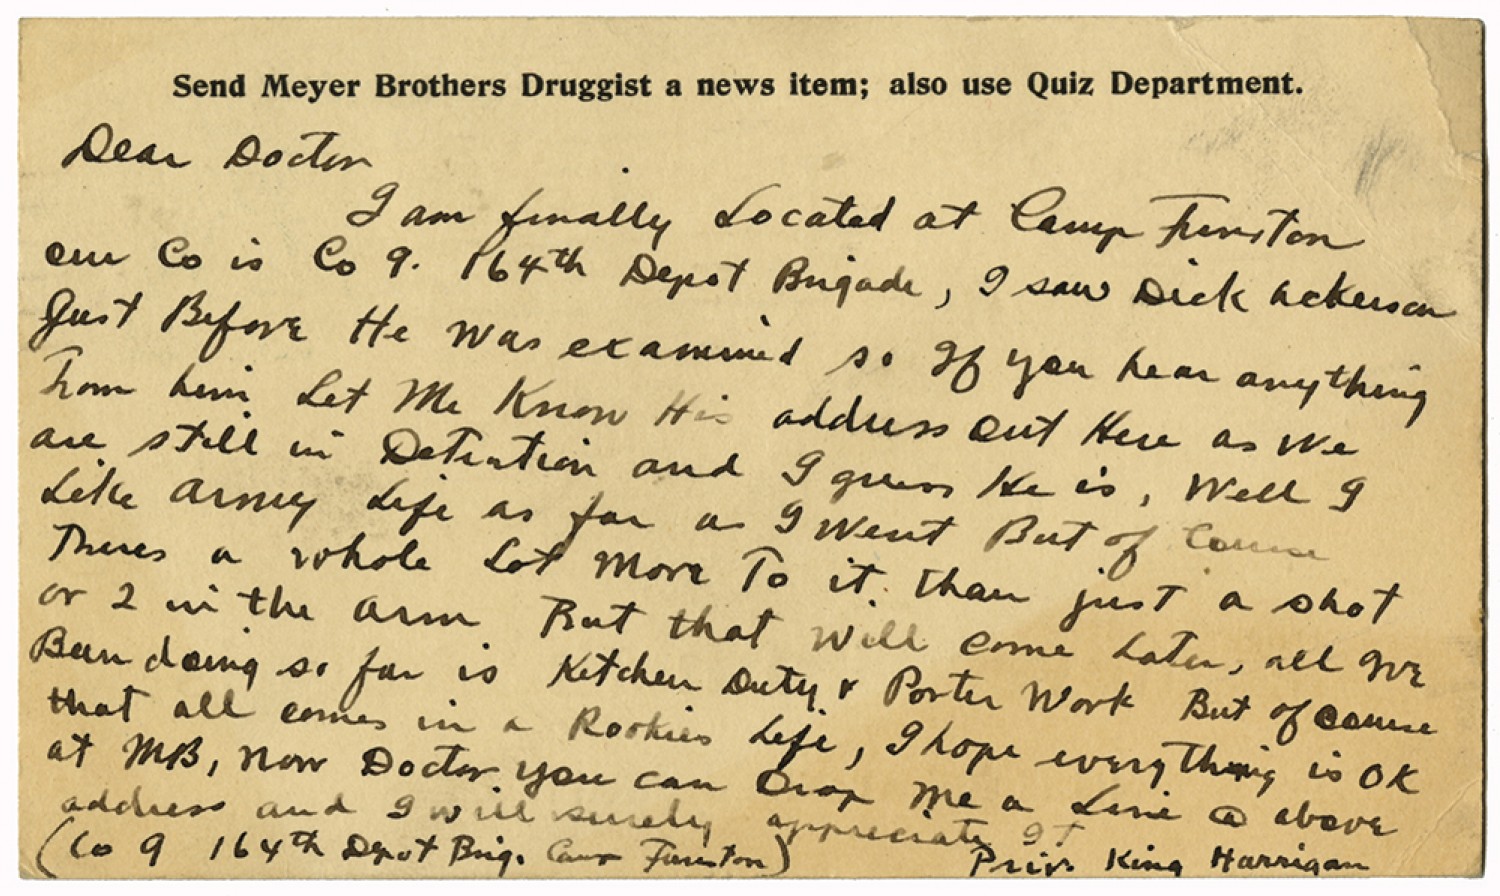 Send Meyer Brothers Druggist a news item; also use Quiz Department.
Dear Doctor
I am finally Located at Camp Funston
our Co is Co 9. 164th Depot Brigade, I saw Dick Ackerson
Just Before He was examined so If you hear anything
From him Let Me Know His address out Here as We
are still in Detention and I guess He is, Well I
Like Army Life as far as I Went But of Course
Theres a whole Lot More To it than just a shot
or 2 in the arm But that Will come Later, all Ive
Been doing so far is Kitchen Duty & Porter Work But of course
that all comes in a Rookies Life, I hope everything is OK
at MB, Now Doctor you can Drop Me a Line @ above
address and I will surely appreciate It
(Co 9 164th Depot Brig. Camp Funston) Priv. King Harrigan